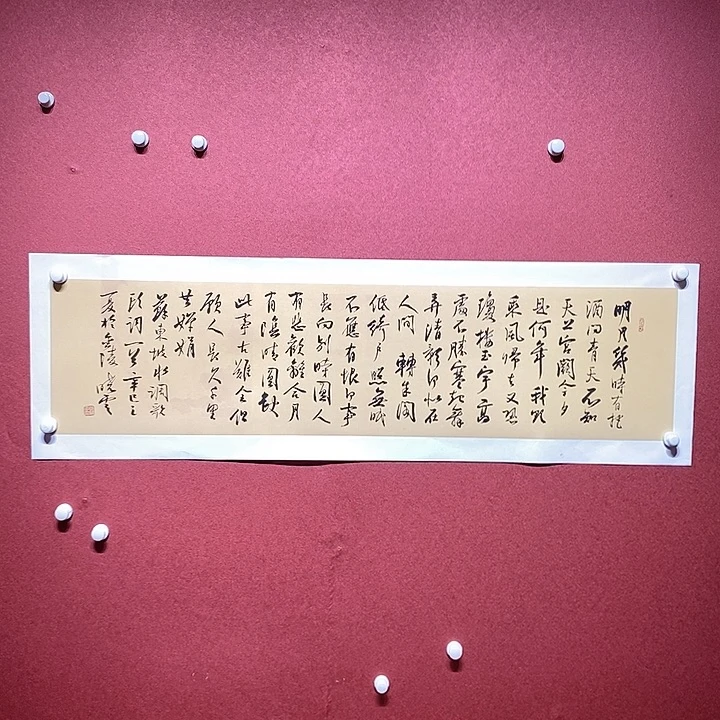 明月幾時有把
酒问青天不知
天上宫阙今夕
是何年我欲
乘風歸去又恐
瓊楼玉宇高
處不勝寒起舞
弄清影何似在
人间轉朱阁
低绮户照無眠
不應有恨何事
長向别時圆人
有悲歡離合月
有陰晴圆缺
此事古難全但
願人長久千里
共嬋娟
蘇東坡水调歌
頭词一首辛巳之
夏於金陵晓雲